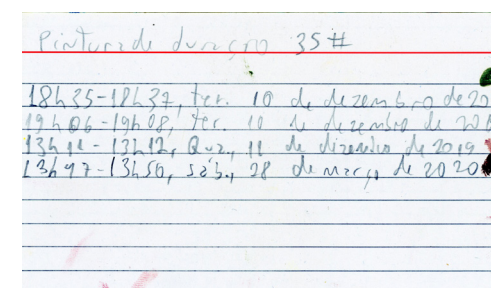 Pintura di duração 35#
18h35-18h37, ter. 10 de dezembro de 20
19h06-19h08, ter. 10 de dezembro de 20
13h11-13h12, Qua., 11 de dizembro de 2019
13h47-13h50, sáb., 28 de março de 2020